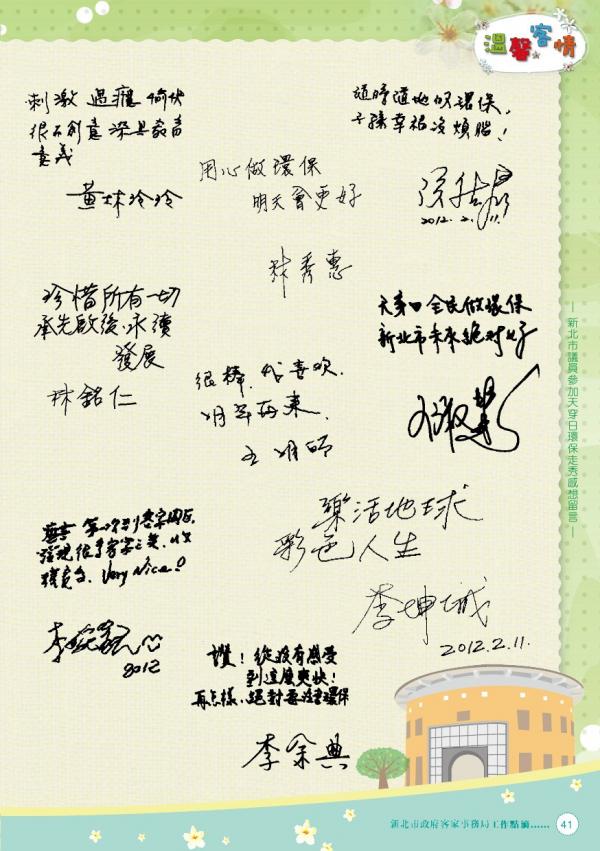 溫馨客情
刺激 過癮 愉快
很有創意 深具教育
意義
黃林玲玲
用心做環保
明天會更好
林秀惠
子孫幸福沒煩惱！
2012.2.11.
珍惜所有一切
承先啟後.永續
發展
林銘仁
很棒.我喜歡.
明年再來.
王明師
天穿日全民做環保
新北市未來絕對好
第一次到客家園區
發現很多客家之美，以及
Very Nice!
2012
樂活地球
彩色人生
李坤城
2012.2.11.
讚！從沒有感受
到這麼爽快！
再怎樣，絕對要注重環保
李余典
新北市議員參加天穿日環保走秀感想留言
新北市政府客家事務局工作點滴...... 41